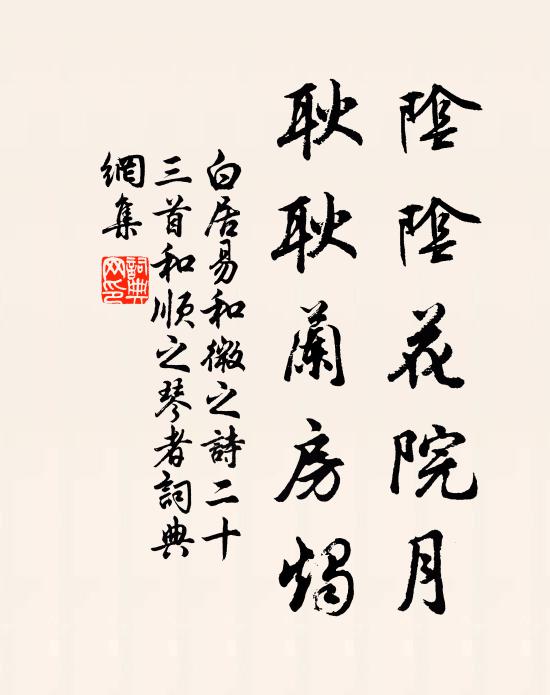 陰陰花院月
耿耿蘭房燭
白居易和微之詩二十
三首和順之琴者詞典
網集
詞典網印